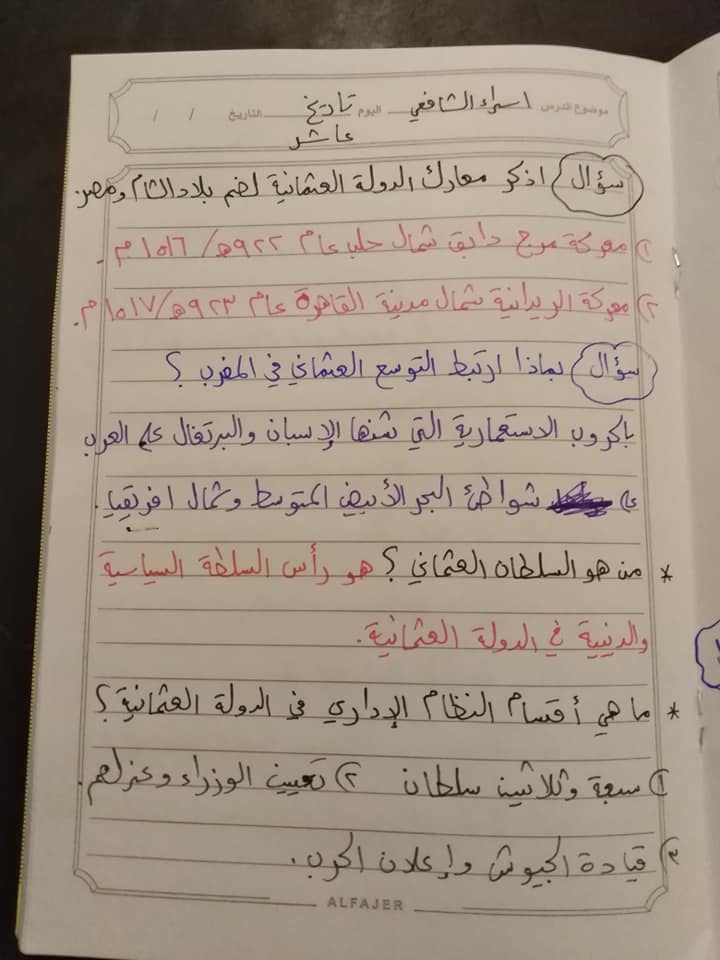 موضوع الدرس اسراء الشافعي اليوم تاريخ التاريخ / /
عاشر
سؤال) اذكر معارك الدولة العثمانية لضم بلاد الشام ومصر
١) معركة مرج دابق شمال حلب عام ٩٢٢هـ/ ١٥١٦م.
٢) معركة الريدانية شمال مدينة القاهرة عام ٩٢٣هـ/١٥١٧م.
سؤال) بماذا ارتبط التوسع العثماني في المغرب ؟
بالحروب الاستعمارية التي شنها الإسبان والبرتغال على العرب
على شواطئ البحر الأبيض المتوسط وشمال افريقيا.
* من هو السلطان العثماني ؟ هو رأس السلطة السياسية
والدينية في الدولة العثمانية.
* ما هي أقسام النظام الإداري في الدولة العثمانية؟
١) سبعة وثلاثين سلطان ٢) تعيين الوزراء وعزلهم.
٣) قيادة الجيوش وإعلان الحرب.
ALFAJER